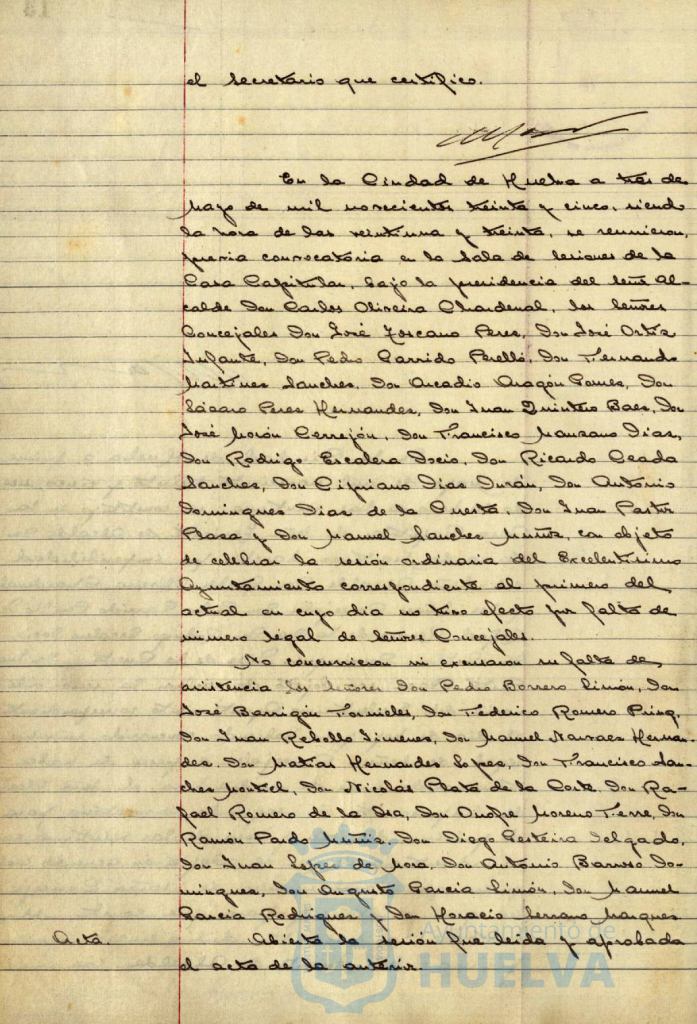 el Secretario que certifico.
En la Ciudad de Huelva a tres de
Mayo de mil novecientos treinta y cinco, siendo
la hora de las veintiuna y treinta, se reunieron,
previa convocatoria en la Sala de Sesiones de la
Casa Capitular, bajo la presidencia del Señor Al-
calde Don Carlos Oliveira Chardenal, los Señores
Concejales Don José Toscano Peres, Don José Ortiz
Infante, Don Pedro Garrido Perelló, Don Fernando
Martines Sanches, Don Arcadio Aragón Gomes, Don
Lásaro Peres Hernandes, Don Juan Quintero Baes, Don
José Morón Cerrejón, Don Francisco Manzano Dias,
Don Rodrigo Escalera Docio, Don Ricardo Ceada
Sanches, Don Cipriano Dias Durán, Don Antonio
Domingues Dias de la Cuesta, Don Juan Pastor
Basa y Don Manuel Sanches Muñoz, con objeto
de celebrar la sesión ordinaria del Excelentísimo
Ayuntamiento correspondiente al primero del
actual en cuyo dia no tuvo efecto por falta de
número legal de Señores Concejales.
No concurrieron ni excusaron su falta de
asistencia los Señores Don Pedro Borrero Limón, Don
José Barrigón Fornieles, Don Federico Romero
Don Juan Rebollo Jimenes, Don Manuel Narvaes Hernan-
des, Don Matias Hernandes Lopes, Don Francisco San-
ches Montiel, Don Nicolás Plata de la Corte, Don Ra-
fael Romero de la Osa, Don Onofre Moreno Terre, Don
Ramón Pardo Muñiz, Don Diego Pesteira Delgado,
Don Juan Lopes de Mora, Don Antonio Barroso Do-
mingues, Don Augusto Garcia Limón, Don Manuel
Garcia Rodrigues y Don Horacio Serrano Marques
Acta. Abierta la sesión fue leida y aprobada
el acta de la anterior.
Ayuntamiento de
HUELVA